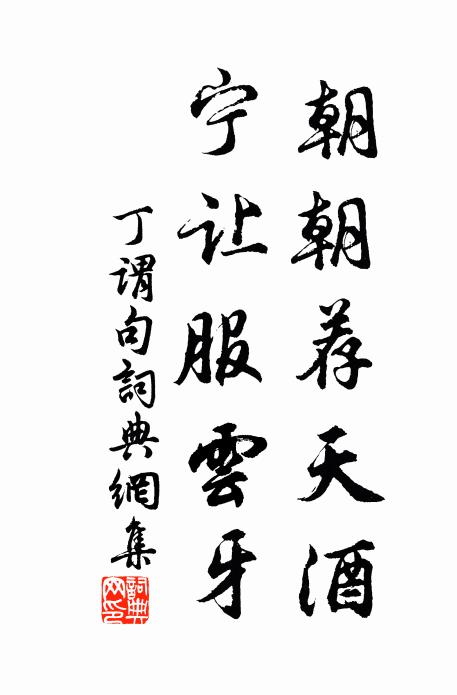 朝朝荐天酒
宁让服雲牙
丁谓句詞典網集
詞典
网印